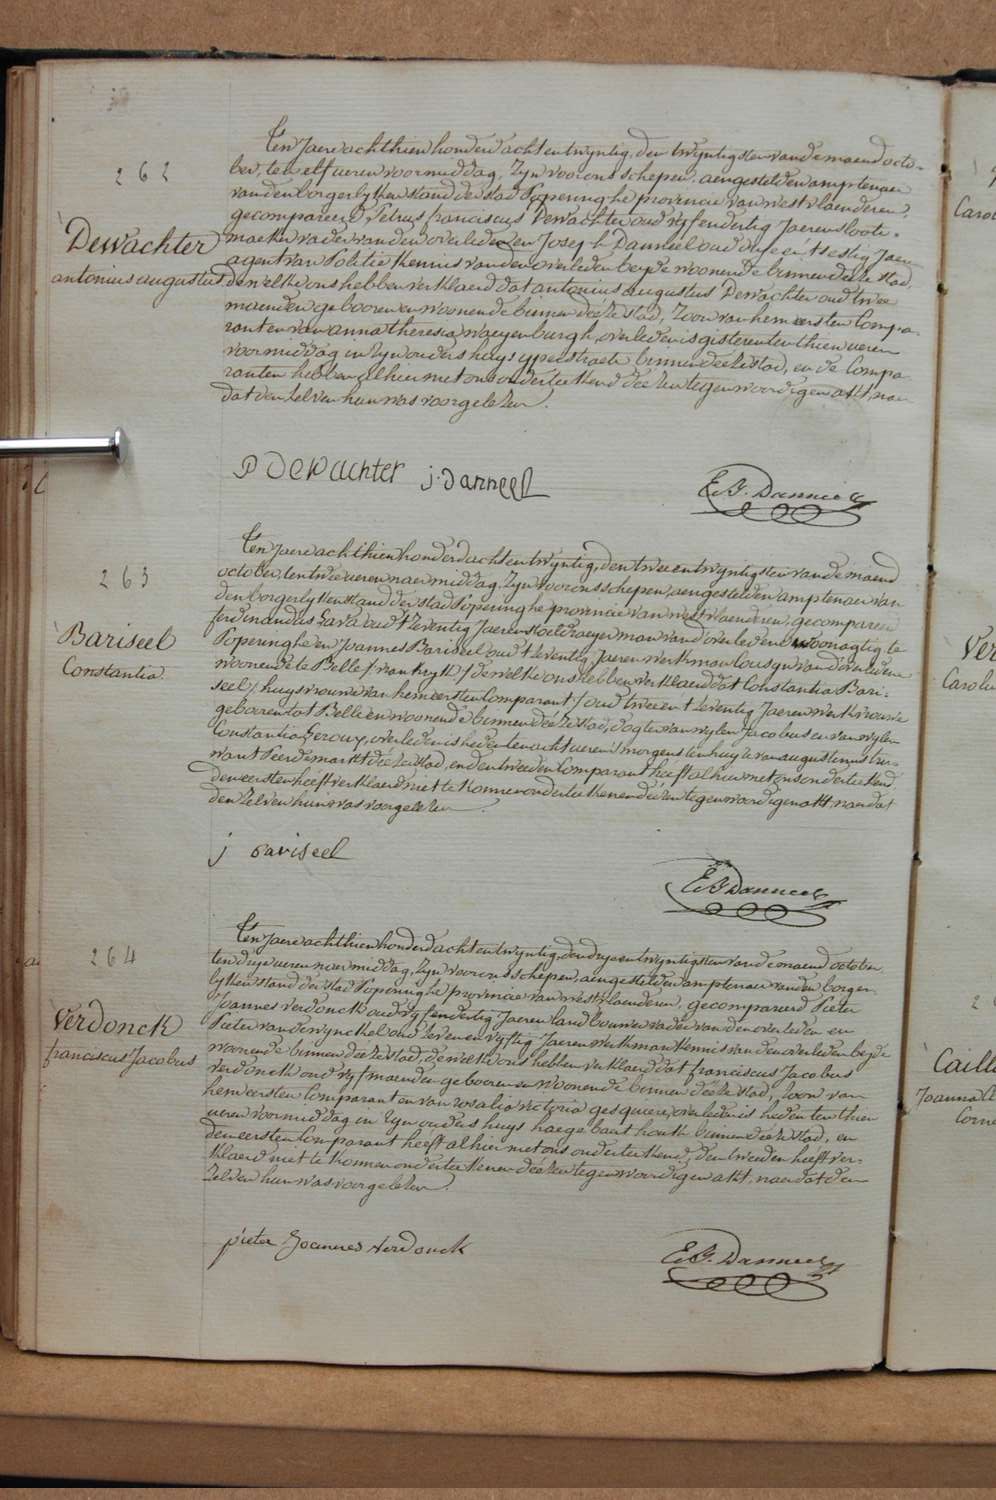 262
Dewachter
antonius augustus
Ten Jaere achthien honderd acht en twyntig, den twyntigsten van de maend octo-
ber, ten elf ueren voormiddag, Zyn voor ons schepen, aengestelden amptenaer
van den borgerlyken stand der stad Poperinghe provincie van westvlaenderen,
gecompareerd Petrus franciscus Dewachter oud vyf en dertig Jaeren sloote-
maeker vader van den overleden en Joseph Danneel oud een t'sestig Jaer
agent van Politie Kennis van den overleden beyde woonende binnen deéze stad,
dewelke ons hebben verklaerd dat antonius augustus Dewachter oud twee
maenden gebooren en woonende binnen deéze stad, Zoon van hem eersten Compa-
rant en van anna theresia wayenburgh, overleden is gisteren ten thien ueren
voormiddag in Zyn ouders huys yperstraete binnen deéze stad, en de Compa-
ranten hebben alhier met ons onderteekend deézen tegenwoordigen akt, naer
dat den zelven hun was voorgelezen.
P Dewachter j. danneel
E. B. Danneel
263
Bariseel
Constantia
Ten Jaere achthien honderd acht en twyntig, den twee en twyntigsten van de maend
october, ten twee ueren naermiddag, Zyn voor ons schepen, aengestelden amptenaer van
den borgerlyken stand der stad Poperinghe provincie van westvlaenderen, gecompareerd
ferdinandus oud t'zeventig Jaeren stoeldraeyer man van d'overledene woonagtig te
Poperinghe en Joannes Bariseel oud t'zeventig Jaeren werkman Cousyn van d'overledene
woonende te Belle / vrankryk / dewelke ons hebben verklaerd dat Constantia Bari-
seel / huysvrouwe van hem eersten Comparant / oud twee en t'zeventig Jaeren werkvrouwe
gebooren tot Belle en woonende binnen deéze stad, dogter van wylen Jacobus en van wylen
Constantia Leroux, overleden is heden ten acht ueren 's morgens ten huyze van augustinus
want Peerdemarkt deéze stad, en den tweeden Comparant heeft alhier met ons onderteekend,
den eersten heeft verklaerd niet te Konnen onderteekenen deézen tegenwoordigen akt, naer dat
den Zelven hun was voorgelezen.
j bariseel
E B Danneel
264
Verdonck
franciscus Jacobus
Ten Jaere achthien honderd acht en twyntig, den dryentwyntigsten van de maend october
ten drye ueren naermiddag, Zyn voor ons schepen, aengestelden amptenaer van den borger-
lyken stand der stad Poperinghe provincie van westvlaenderen, gecompareerd Pieter
Joannes verdonck oud vyf en dertig Jaeren landbouwer vader van den overleden en
Pieter vandewynckel oud zeven en vyftig Jaeren werkman Kennis van den overleden beyde
woonende binnen deéze stad, dewelke ons hebben verklaerd dat franciscus Jacobus
verdonck oud vyf maenden gebooren en woonende binnen deéze stad, Zoon van
hem eersten Comparant en van rosalia victoria gesquiere, overleden is heden ten thien
ueren voormiddag in Zyn ouders huys haegebaert houk binnen deéze stad, en
den eersten Comparant heeft alhier met ons onderteekend, den tweeden heeft ver-
klaerd niet te Konnen onderteekenen deézen tegenwoordigen akt, naer dat den
Zelven hun was voorgelezen.
pieter Joannes verdonck
E. B. Danneel
Caroli
Ver
Carolu
Caill
Joanna C
Corne